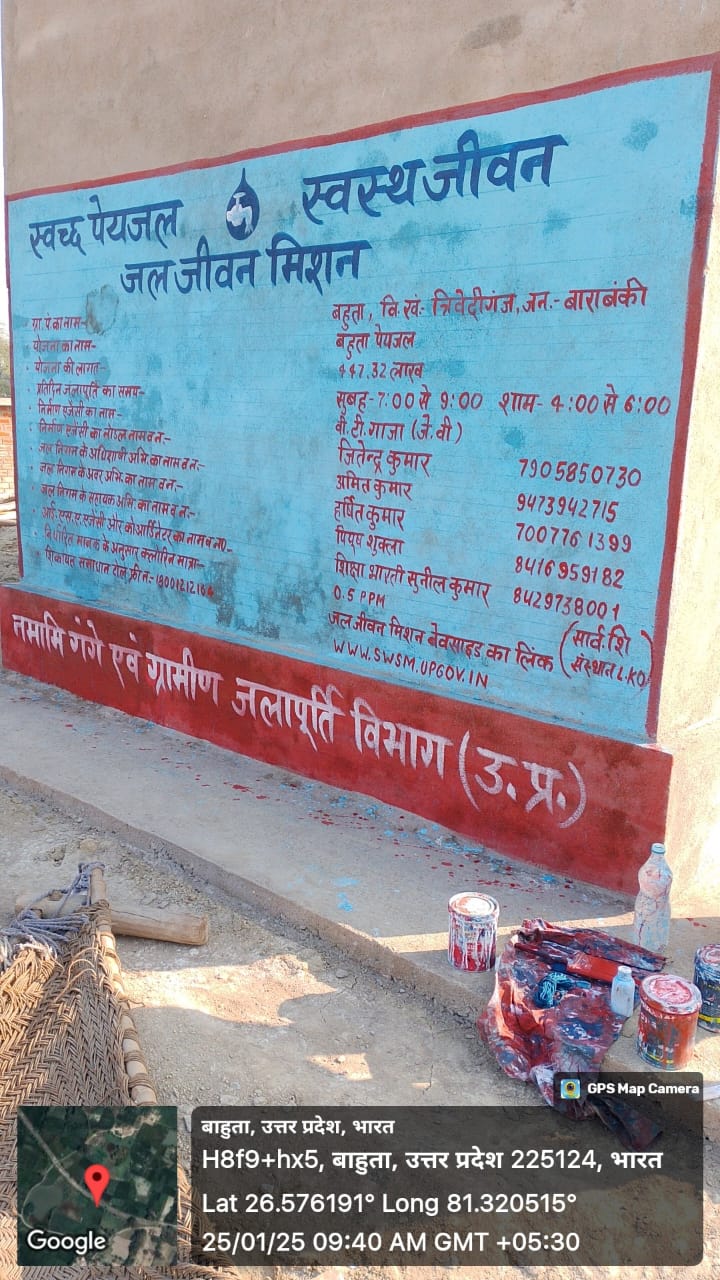 स्वच्छ पेयजल स्वस्थ जीवन
जल जीवन मिशन
ग्रा. पं. का नाम- बहुता, वि. खं:- त्रिवेदीगंज, जन.- बाराबंकी
योजना का नाम- बहुता पेयजल
योजना की लागत- 447.32 लाख
प्रतिदिन जलापूर्ति का समय- सुबह- 7:00 से 9:00 शाम- 4:00 से 6:00
निर्माण एजेंसी का नाम- वी. टी. गाजा (जे. वी)
निर्माण एजेंसी का नोडल नाम व न:- जितेन्द्र कुमार 7905850730
जल निगम के अधिशाषी अभि. का नाम व न:- अमित कुमार 9473942715
जल निगम के अवर अभि. का नाम व न:- हर्षित कुमार 7007761399
जल निगम के सहायक अभि. का नाम व न:- पियूष शुक्ला 8416959182
आई. एस. ए. एजेंसी और कोआर्डिनेटर का नाम व न०- शिक्षा भारती सुनील कुमार 8429738001
(सार्व. शि संस्थान L.KO)
निर्धारित मानक के अनुसार क्लोरिन मात्रा- 0.5 PPM
शिकायत समाधान टोल फ्री न:- 18001212164 जल जीवन मिशन बेवसाइड का लिंक
WWW.SWSM.UPGOV.IN
नमामि गंगे एवं ग्रामीण जलापूर्ति विभाग (उ. प्र.)
GPS Map Camera
बाहुता, उत्तर प्रदेश, भारत
H8f9+hx5, बाहुता, उत्तर प्रदेश 225124, भारत
Lat 26.576191° Long 81.320515°
25/01/25 09:40 AM GMT +05:30
Google